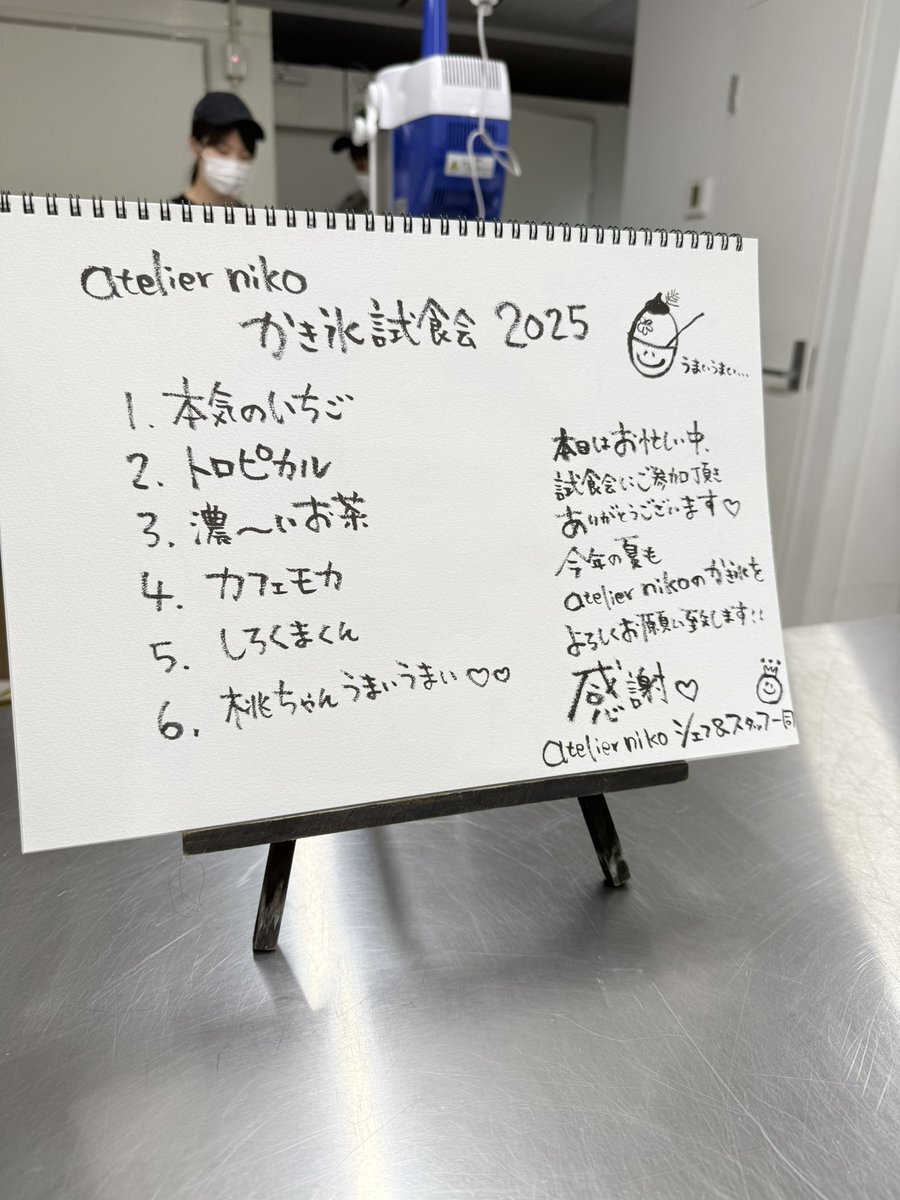 atelier niko
かき氷試食会 2025
うまいうまい...
1. 本気のいちご
2. トロピカル
3. 濃〜いお茶
4. カフェモカ
5. しろくまくん
6. 桃ちゃんうまいうまい♡♡
本日はお忙しい中、
試食会にご参加頂き
ありがとうございます♡
今年の夏も
atelier nikoのかき氷を
よろしくお願い致します!!
感謝♡
atelier niko シェフ&スタッフ一同